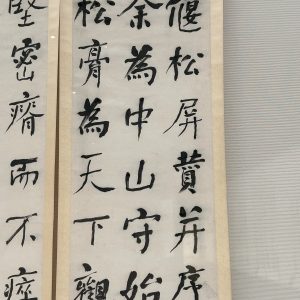 偃松屏贊并序
余為中山守始
松膏為天下觀
堅密瘠而不瘁